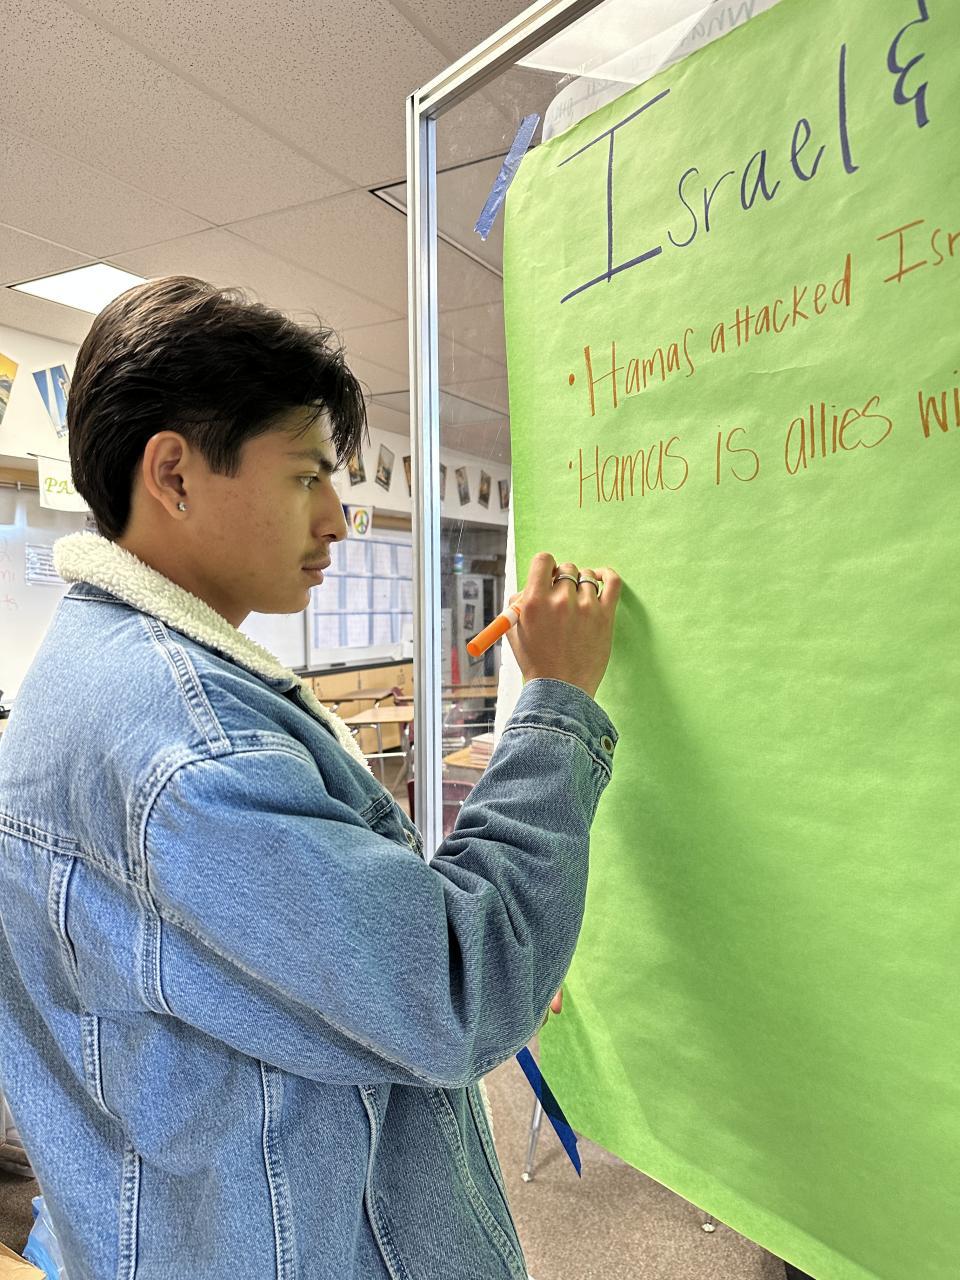 Israel &
• Hamas attacked Isr
• Hamas is allies wi
PA